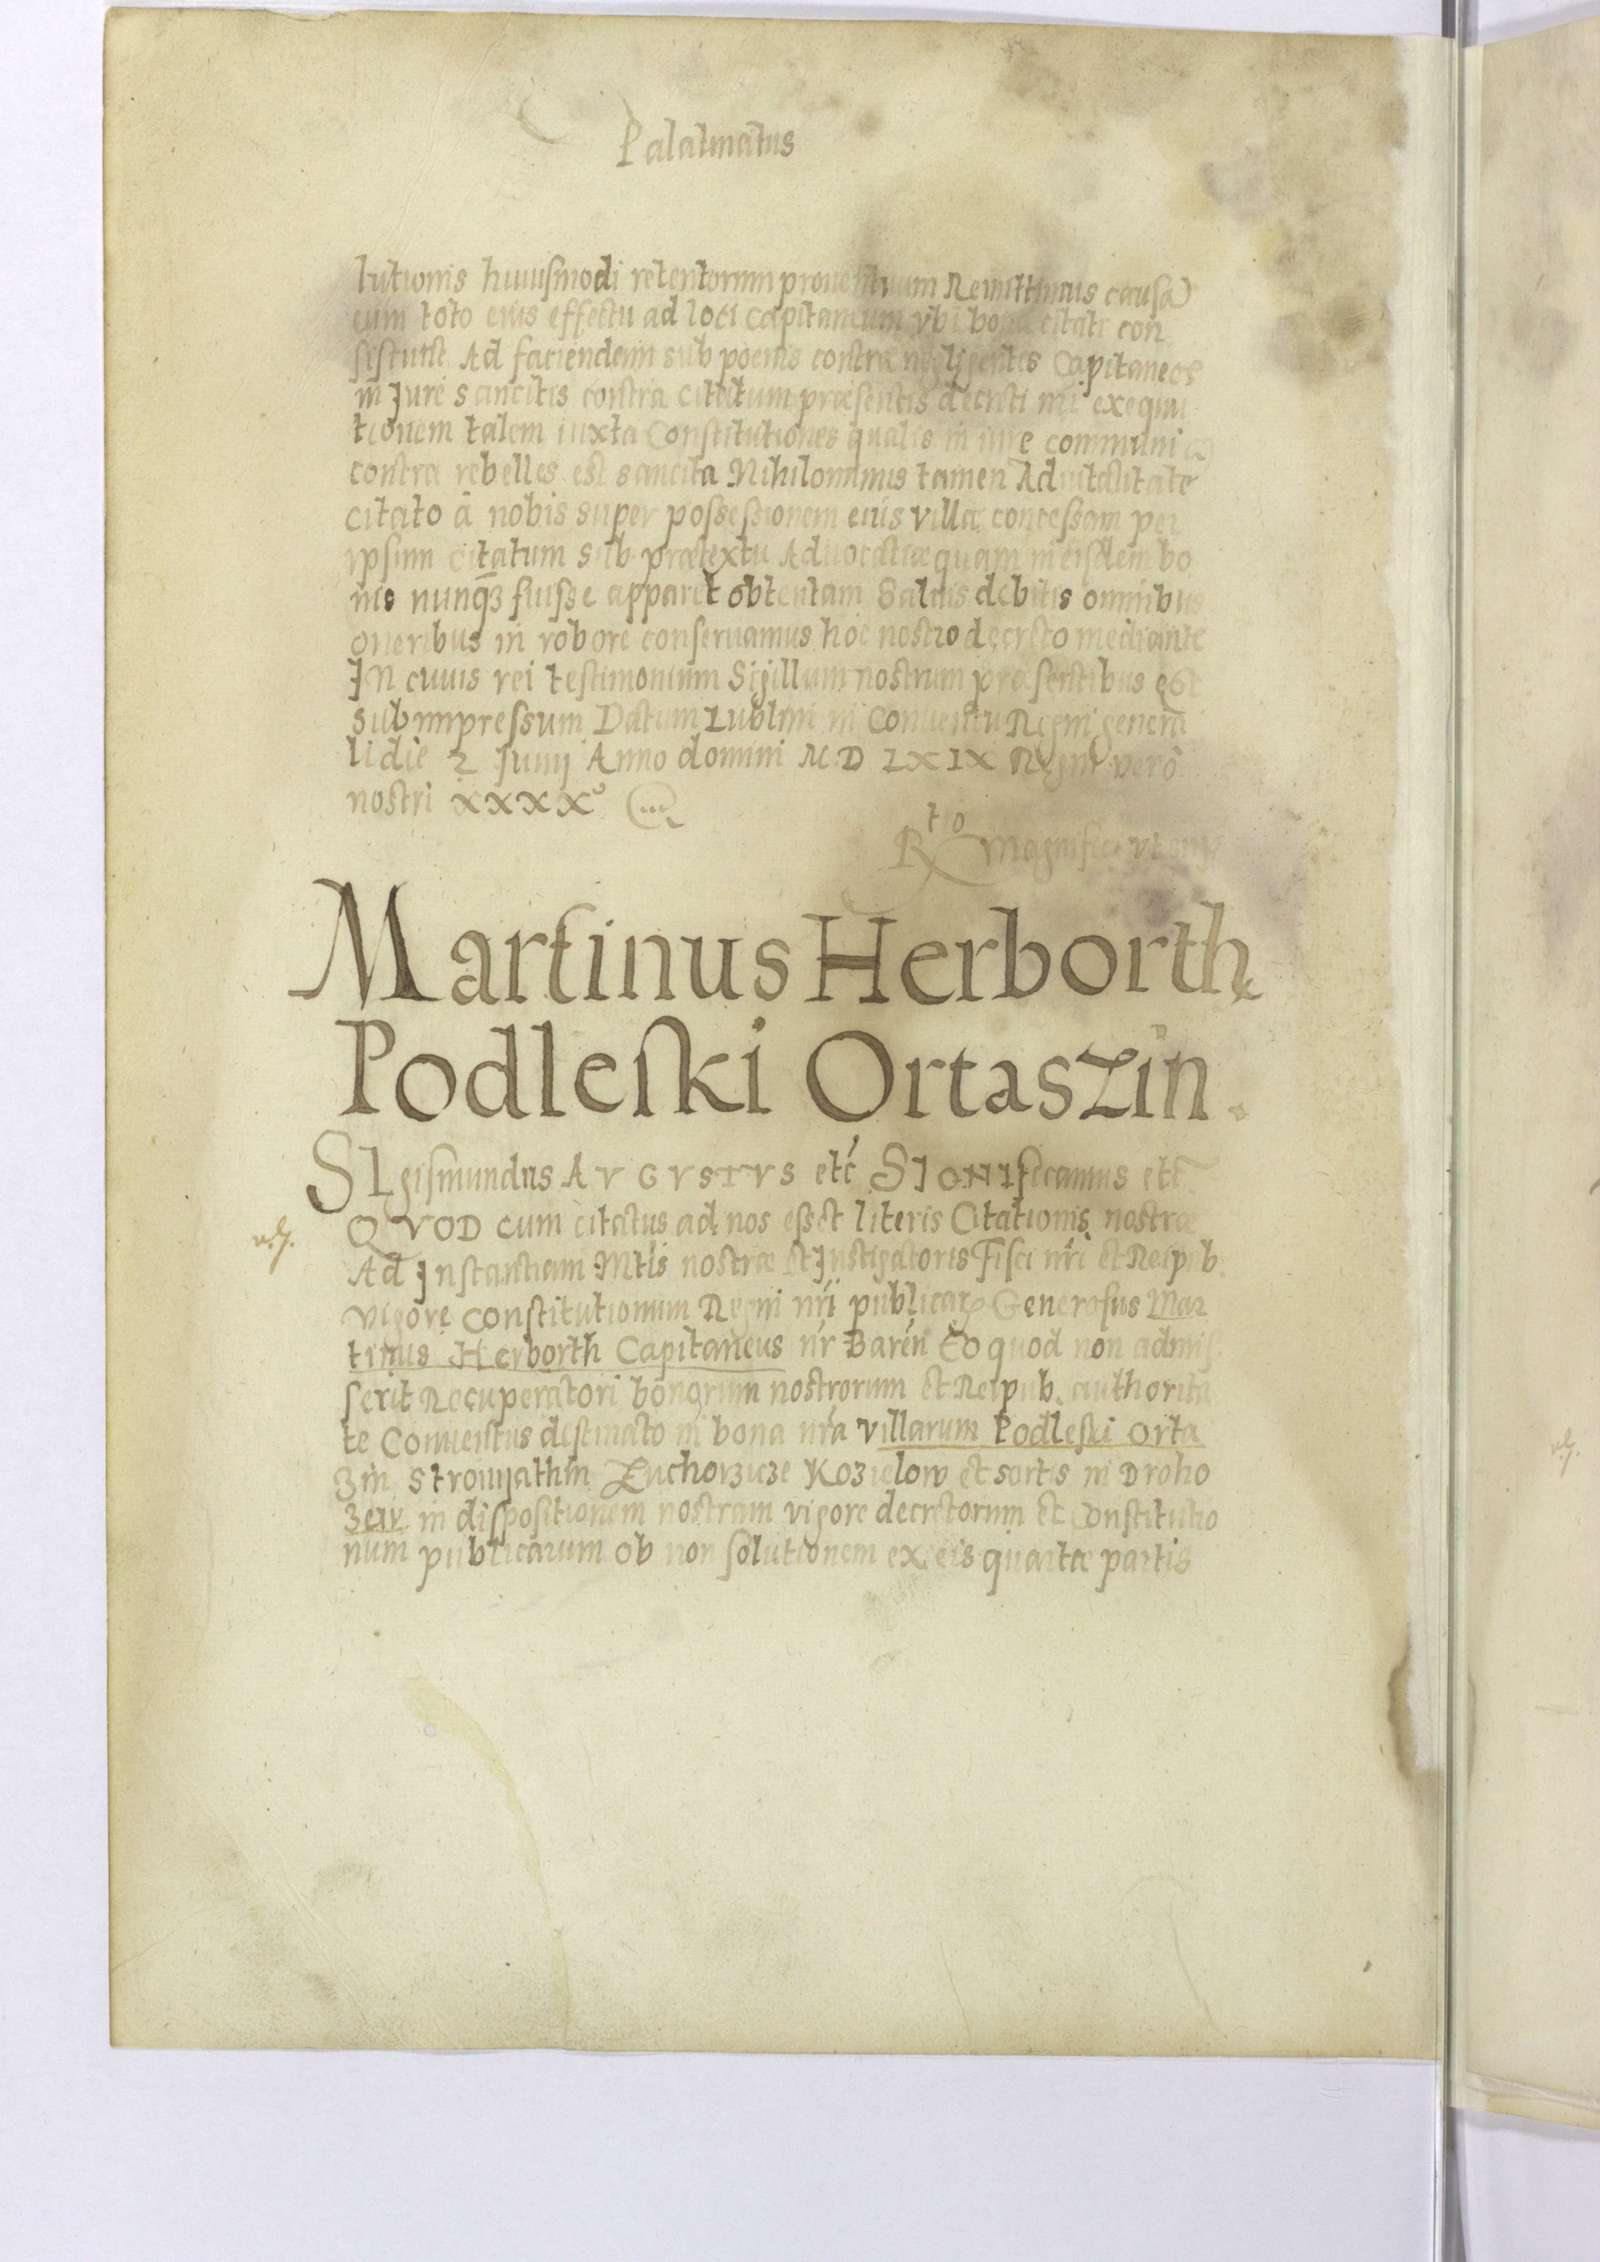 Palatinatus
lutionis huiusmodi retentorum prouentuum Remittimus causã
cum toto eius effectu ad loci capitaneum vbi bona citati con
sistunt Ad faciendam sub poenis contra negligentes Capitaneos
in Jure sancitis contra citatum præsentis decreti nri exequu
tionem talem iuxta Constitutiones qualis in iure communi
contra rebelles est sancita Nihilominus tamen Aduitalitatē
citato à nobis super possessionem eius villæ concessam per
ipsum citatum sub prætextu Aduocatiæ quam in eisdem bo
nis nunq̃ȝ fuisse apparet obtentam Saluis debitis omnibus
oneribus in robore conseruamus hoc nostro decreto mediante
IN cuius rei testimonium Sigillum nostrum præsentibus est
subimpressum Datum Lublini in Conuentu Regni genera
li die 2 Junij Anno domini M D LXIX Regni verò
nostri XXXXº
Rto magnifici
Martinus Herborth
Podleski Ortaszin.
SIgismundus AVGVSTVS etc̃ SIGNIficamus etc̃
QVOD cum citatus ad nos esset literis Citationis nostræ
Ad Instantiam Mtis nostræ et Instigatoris Fisci nri et Reipub.
vigore constitutionum Regni nri publicarꝝ Generosus Mar
tinus Herborth Capitaneus nr Baren̄ Eo quod non admis
serit Recuperatori bonorum nostrorum et Reipub. authorita
te Conuentus destinato in bona nra villarum Podleski Orta
zin Stroniathin Zuchorzicze Kozielow et sortis in Droho
in dispositionem nostram vigore decretorum et Constitutio
num publicarum ob non solutionem ex eis quartæ partis